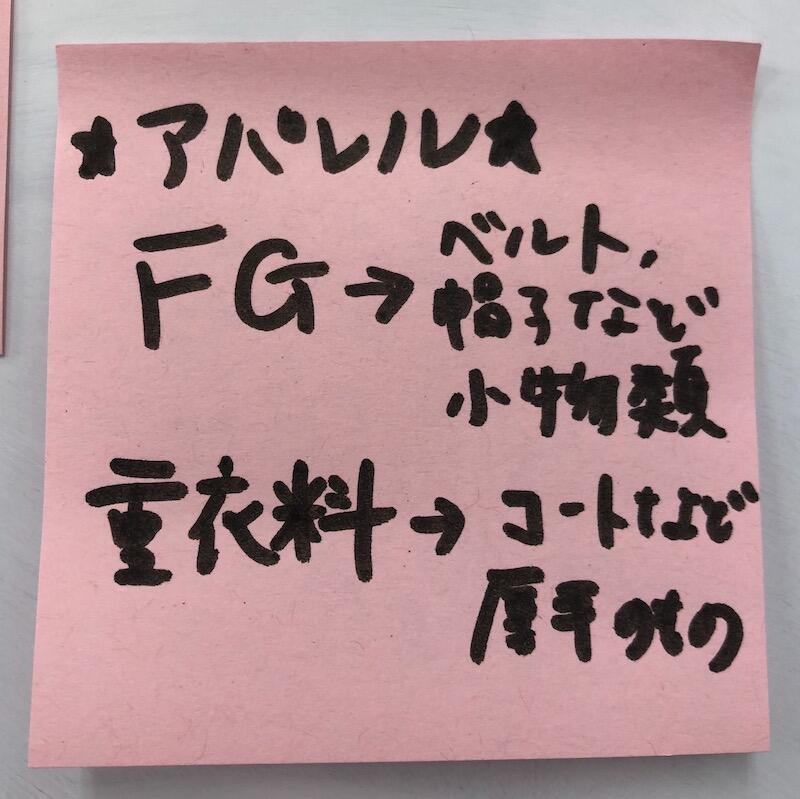 ★アパレル★
FG→ベルト,
帽子など
小物類
重衣料→コートなど
厚手のもの